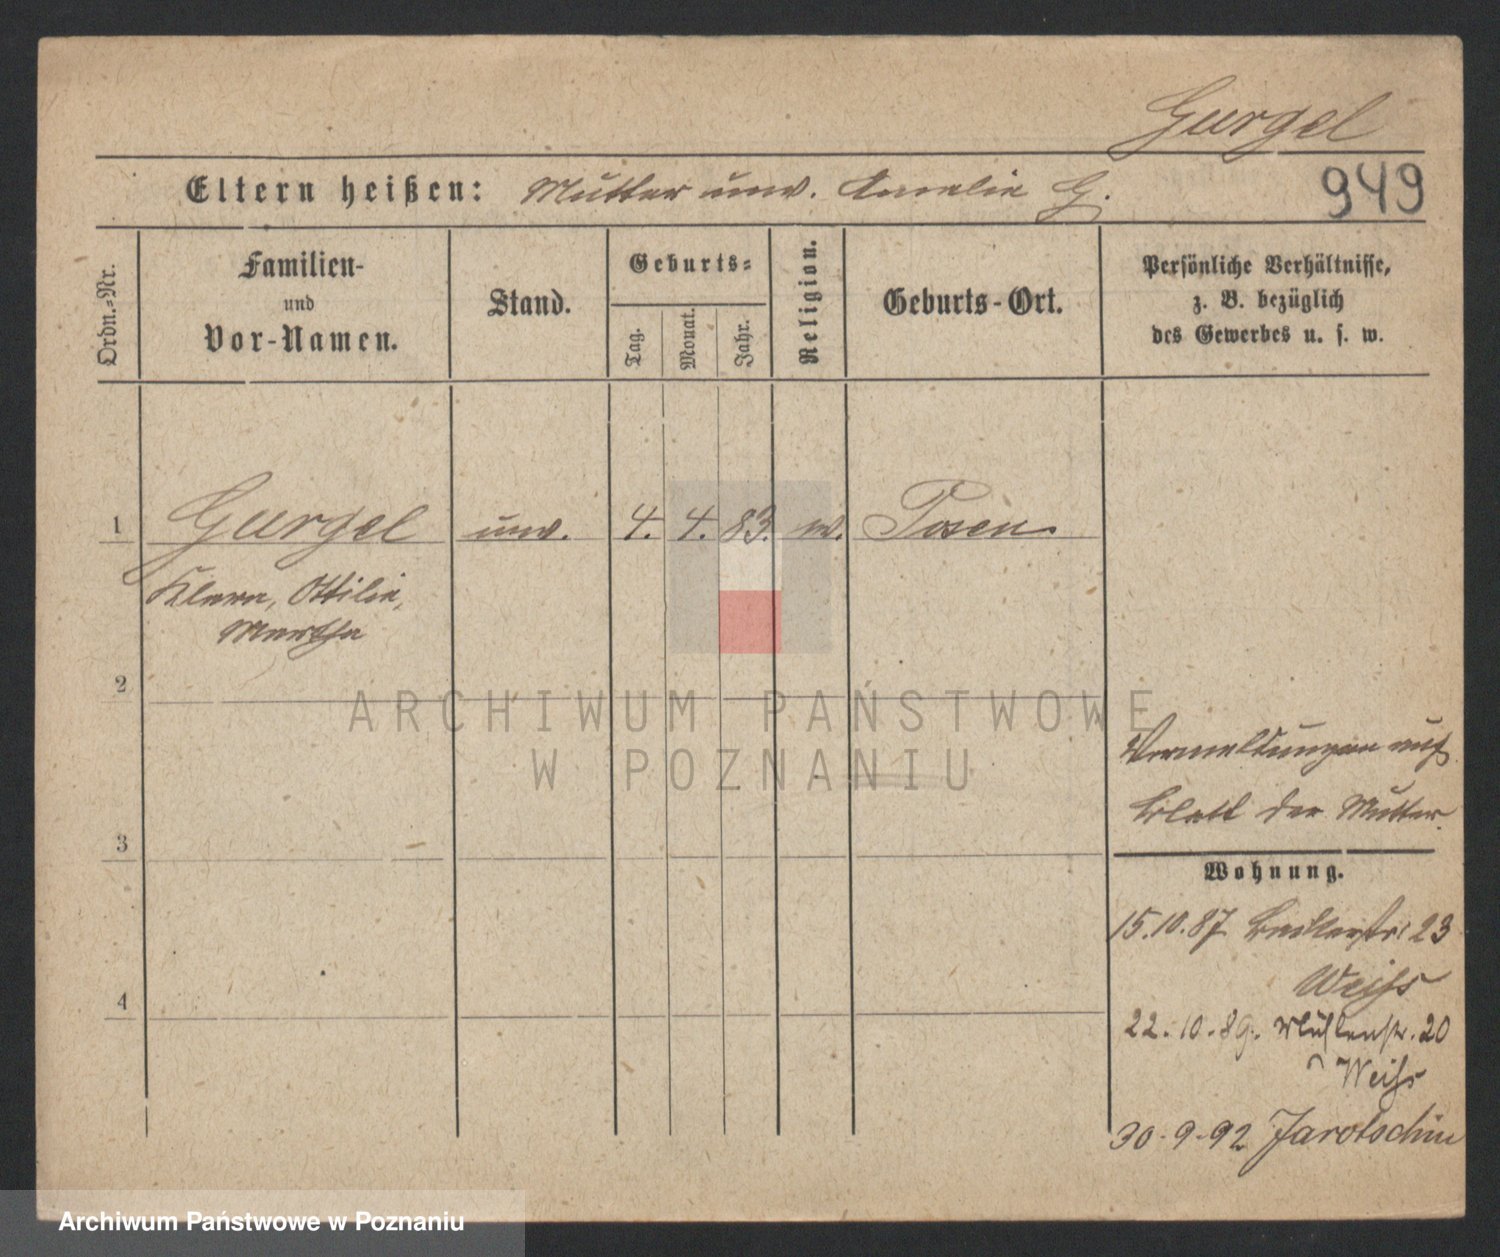 Gurgel
Eltern heißen: Mutter unv. Amalie G.
949
Ordn.-Nr.
Familien-
und
Vor-Namen.
Stand.
Geburts-
Tag.
Monat.
Jahr.
Religion.
Geburts-Ort.
Persönliche Verhältnisse,
z. B. bezüglich
des Gewerbes u. s. w.
1 Gurgel unv. 4. 4. 83. Posen
Klara, Ottilie,
Martha
2
ARCHIWUM PAŃSTWOWE
W POZNANIU
Vermeldungen auf
Blatt der Mutter.
3
Wohnung.
15.10.87 23
Weiss
4
22.10.89. Mühlenstr. 20
Weiss
30-9-92 Jarotschin
Archiwum Państwowe w Poznaniu